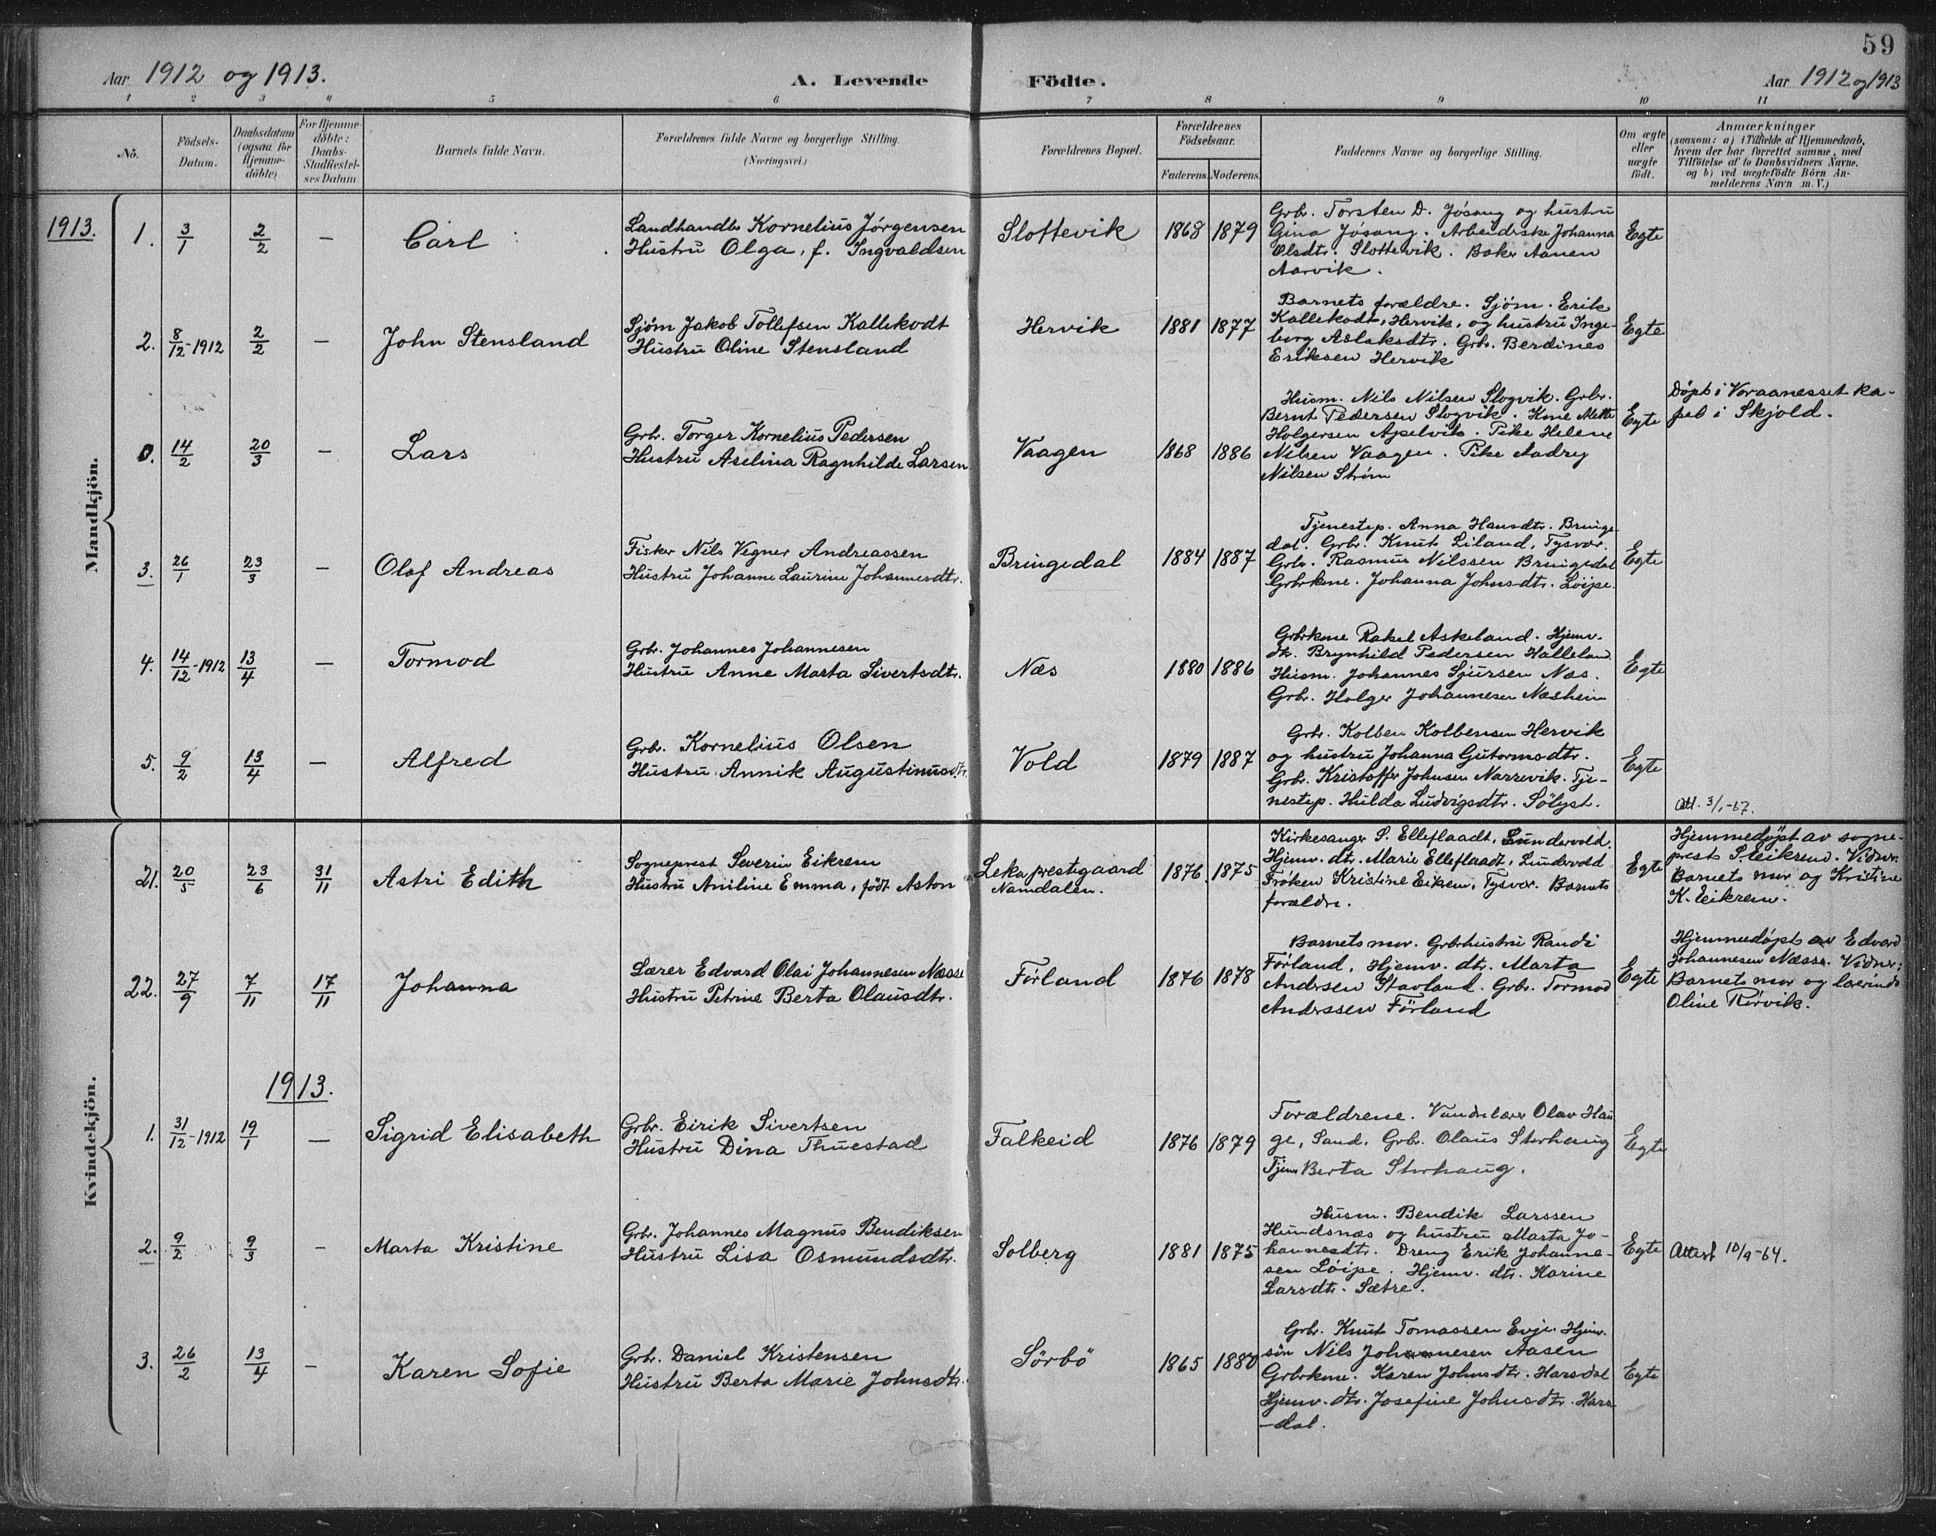 59
Aar 1912 og 1913.
A. Levende Födte.
Aar 1912 og 1913
1 2 3 4 5 6 7 8 9 10 11
No.
Födsels-
Datum.
Daabsdatum
(ogsaa for
Hjemme-
döbte)
For Hjemme-
döbte:
Daabs-
Stadfæstel-
ses Datum.
Barnets fulde Navn.
Forældrenes fulde Navne og borgerlige Stilling.
(Næringsvei.)
Forældrenes Bopæl.
Forældrenes
Födselsaar.
Faderens. Moderens.
Faddernes Navne og borgerlige Stilling.
Om ægte
eller
uægte
födt.
Anmærkninger
(saasom: a) i Tilfælde af Hjemmedaab,
hvem der har forrettet samme, med
Tilföielse af to Daabsvidners Navne.
og b) ved uægtefödte Börn An-
melderens Navn m. V.)
Mandkjön.
1913.
1. 3/1 2/2 — Carl
Landhandler Kornelius Jørgensen
Hustru Olga, f. Ingvaldsen
Slottevik 1868 1879
Grbr. Torsten D. Jøsang og hustru
Gina Jøsang. Arbeiderske Johanna
Olsdtr. Slottevik. Baker Aanen
Aarvik.
Egte
2. 8/12-1912 2/2 — John Stensland
Sjøm Jakob Tollefsen Kallekodt
Hustru Oline Stensland
Hervik 1881 1877
Barnets forældre. Sjøm. Erik
Kallekodt, Hervik, og hustru Inge-
borg Aslaksdtr. Grbr. Berdines
Eriksen Hervik
Egte
0. 14/2 20/3 — Lars
Grbr. Torger Kornelius Pedersen
Hustru Aselina Ragnhilde Larsen
Vaagen 1868 1886
Husm. Nils Nilsen Slogvik. Grbr.
Bernt Pedersen Slogvik. Kone Mette
Holgersen Apelvik. Pike Helene
Nilsen Vaagen. Pike Aadry
Nilsen Strøm
Egte
Døpt i Voraanesset ka-
pel i Skjold.
3. 26/1 23/3 — Olaf Andreas
Fisker Nils Vegner Andreassen
Hustru Johanne Laurine Johannesdtr.
Bringedal 1884 1887
Tjenestep. Anna Hansdtr. Bringe-
dal. Grbr. Knut Liland, Tysvær.
Grbr. Rasmus Nilssen Bringedal
Grbrkone. Johanna Johnsdtr. Løipe.
Egte
4. 14/12-1912 13/4 — Tormod
Grbr. Johannes Johannesen
Hustru Anne Marta Sivertsdtr.
Næs 1880 1886
Grbrkone Rakel Askeland. Hjemv.
dtr. Brynhild Pedersen Halleland
Husm. Johannes Sjursen Næs.
Grbr. Holger Johannesen Næsheim
Egte
5. 9/2 13/4 — Alfred
Grbr. Kornelius Olsen
Hustru Annik Augustinusdtr.
Vold 1879 1887
Grbr. Kolben Kolbensen Hervik
og hustru Johanna Gutormsdtr.
Grbr. Kristoffer Johnsen Narrevik. Tje-
nestep. Hulda Ludvigsdtr. Sölyst.
Egte
Att. 3/1-67.
Kvindekjön.
21. 20/5 23/6 31/11 Astri Edith
Sogneprest Severin Eikrem
Hustru Aniline Emma, født Aston
Leka prestegaard
Namdalen.
1876 1875
Kirkesanger S. Elleflaadt, Lundervold.
Hjemv. dtr. Marie Elleflaadt, Lundervold
Frøken Kristine Eikrem, Tysvær. Barnets
forældre.
Egte
Hjemmedøpt av sogne-
prest S. Eikrem. Vidner:
Barnets mor og Kristine
K. Eikrem.
22. 27/9 7/11 17/11 Johanna
Lærer Edvard Olai Johannesen Næsse
Hustru Petrine Berta Olausdtr.
Førland 1876 1878
Barnets mor. Grbrhustru Randi
Førland, Hjemv. dtr. Marta
Andersen Stavland. Grbr. Tormod
Anderssen Førland
Egte
Hjemmedøpt av Edvard
Johannesen Næsse. Vidner:
Barnets mor og lærerinde
Oline Rørvik.
1913.
1. 31/12-1912 19/1 — Sigrid Elisabeth
Grbr. Eirik Sivertsen
Hustru Dina Thuestad
Falkeid 1876 1879
Forældrene. Vandrelærer Olav Hau-
ge, Sand, Grbr. Olaus Storhaug
Tjen. Berta Storhaug.
Egte
2. 9/2 9/3 — Marta Kristine
Grbr. Johannes Magnus Bendiksen
Hustru Lisa Osmundsdtr.
Solberg 1881 1875
Husm. Bendik Larssen
Hundsnæs og hustru Marta Jo-
hannesdtr. Dreng Erik Johanne-
sen Løipe. Hjemv. dtr. Karine
Larsdtr. Sætre.
Egte
Attest 10/9-64.
3. 26/2 13/4 — Karen Sofie
Grbr. Daniel Kristensen
Hustru Berta Marie Johnsdtr.
Sörbö 1865 1880
Grbr. Knut Tomassen Evje. Hjemv.
søn Nils Johannesen Aasen
Grbrkone. Karen Johnsdtr. Harsdal
Hjemv. dtr. Josefine Johnsdtr. Hars-
dal.
Egte